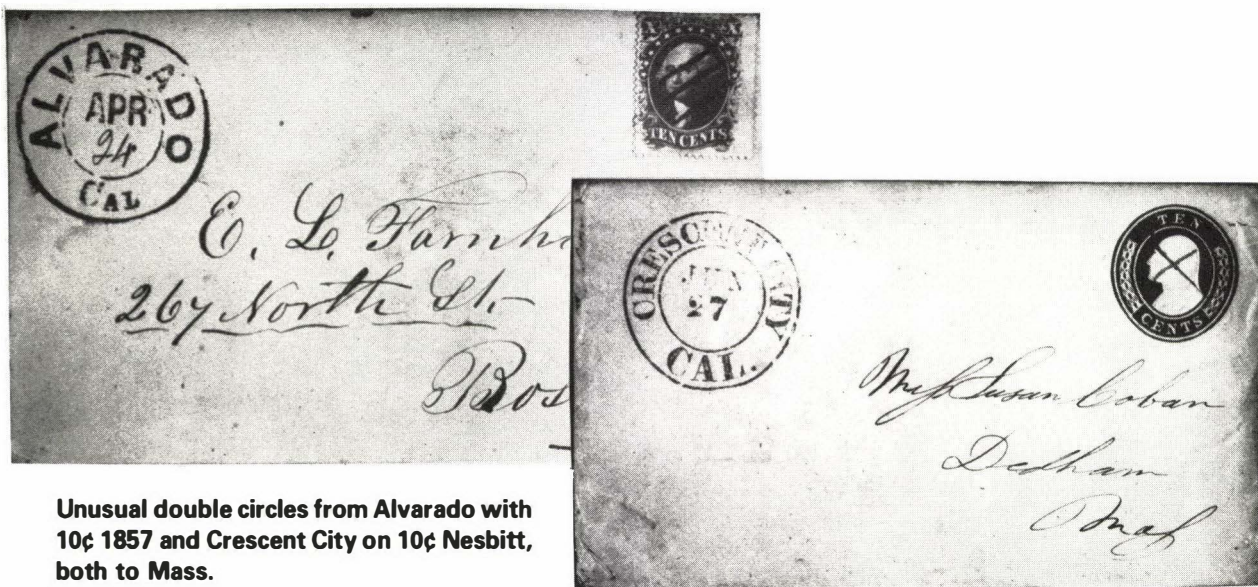 ALVARADO
APR
24
CAL
TEN CENTS
E. L.
267 North St.
Bos
CRESCENT CITY
JUN
27
CAL.
TEN
CENTS
Miss Susan Coban
Dedham
Mass
Unusual double circles from Alvarado with
10¢ 1857 and Crescent City on 10¢ Nesbitt,
both to Mass.